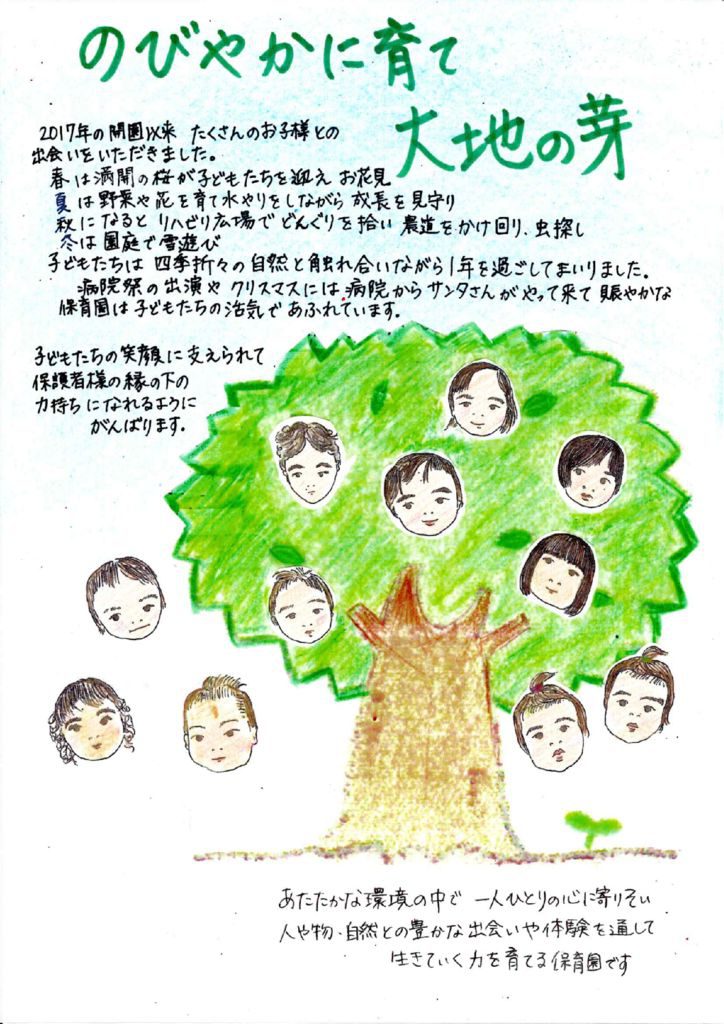 のびやかに育て
大地の芽
2017年の開園以来 たくさんのお子様との
出会いをいただきました。
春は満開の桜が子どもたちを迎え お花見
夏は野菜や花を育て水やりをしながら 成長を見守り
秋になると リハビリ広場で どんぐりを拾い 農道をかけ回り、虫探し
冬は園庭で雪遊び
子どもたちは 四季折々の自然と触れ合いながら1年を過ごしてまいりました。
病院祭の出演や クリスマスには病院からサンタさんがやって来て 賑やかな
保育園は子どもたちの活気であふれています。
子どもたちの笑顔に支えられて
保護者様の縁の下の
力持ちになれるように
がんばります。
あたたかな環境の中で 一人ひとりの心に寄りそい
人や物、自然との豊かな出会いや体験を通して
生きていく力を育てる保育園です